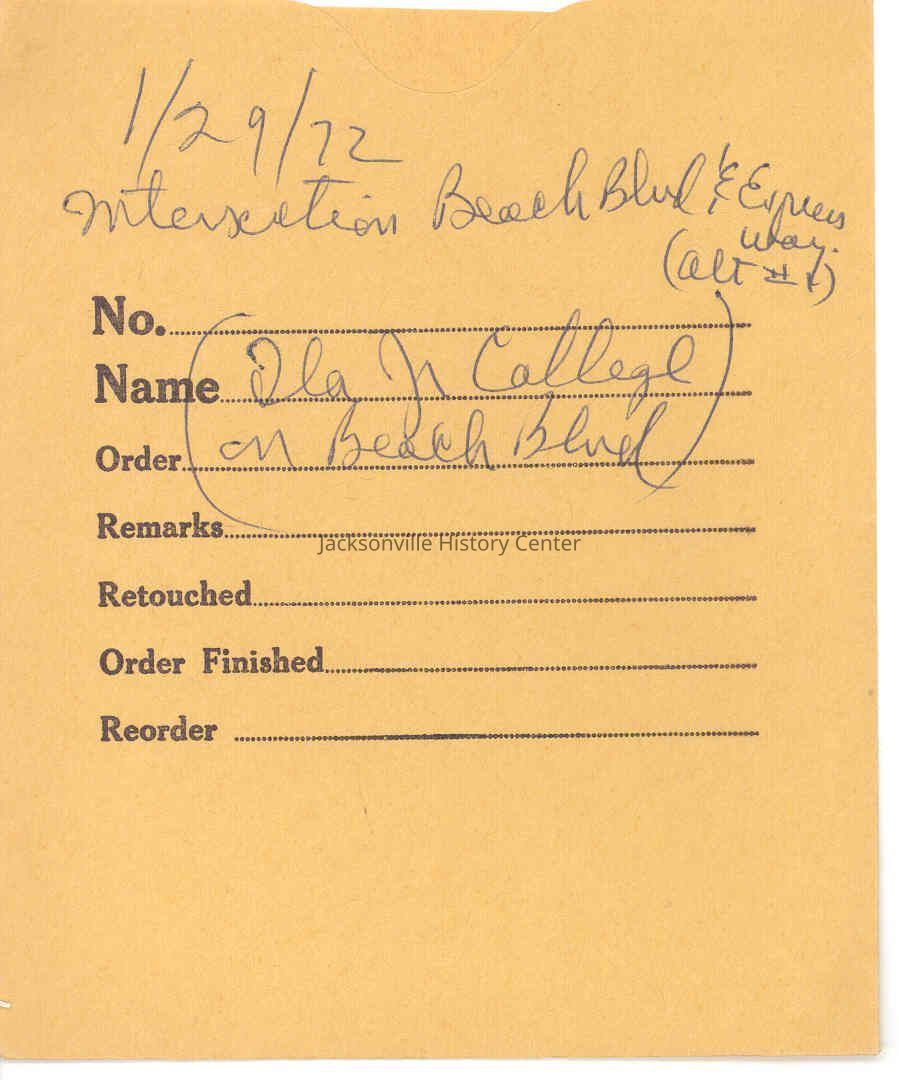 1/29/72
Intersection Beach Blvd & Express
way.
(alt #1)
No.
(Fla Jr College
Name
on Beach Blvd)
Order
Remarks
Jacksonville History Center
Retouched
Order Finished
Reorder